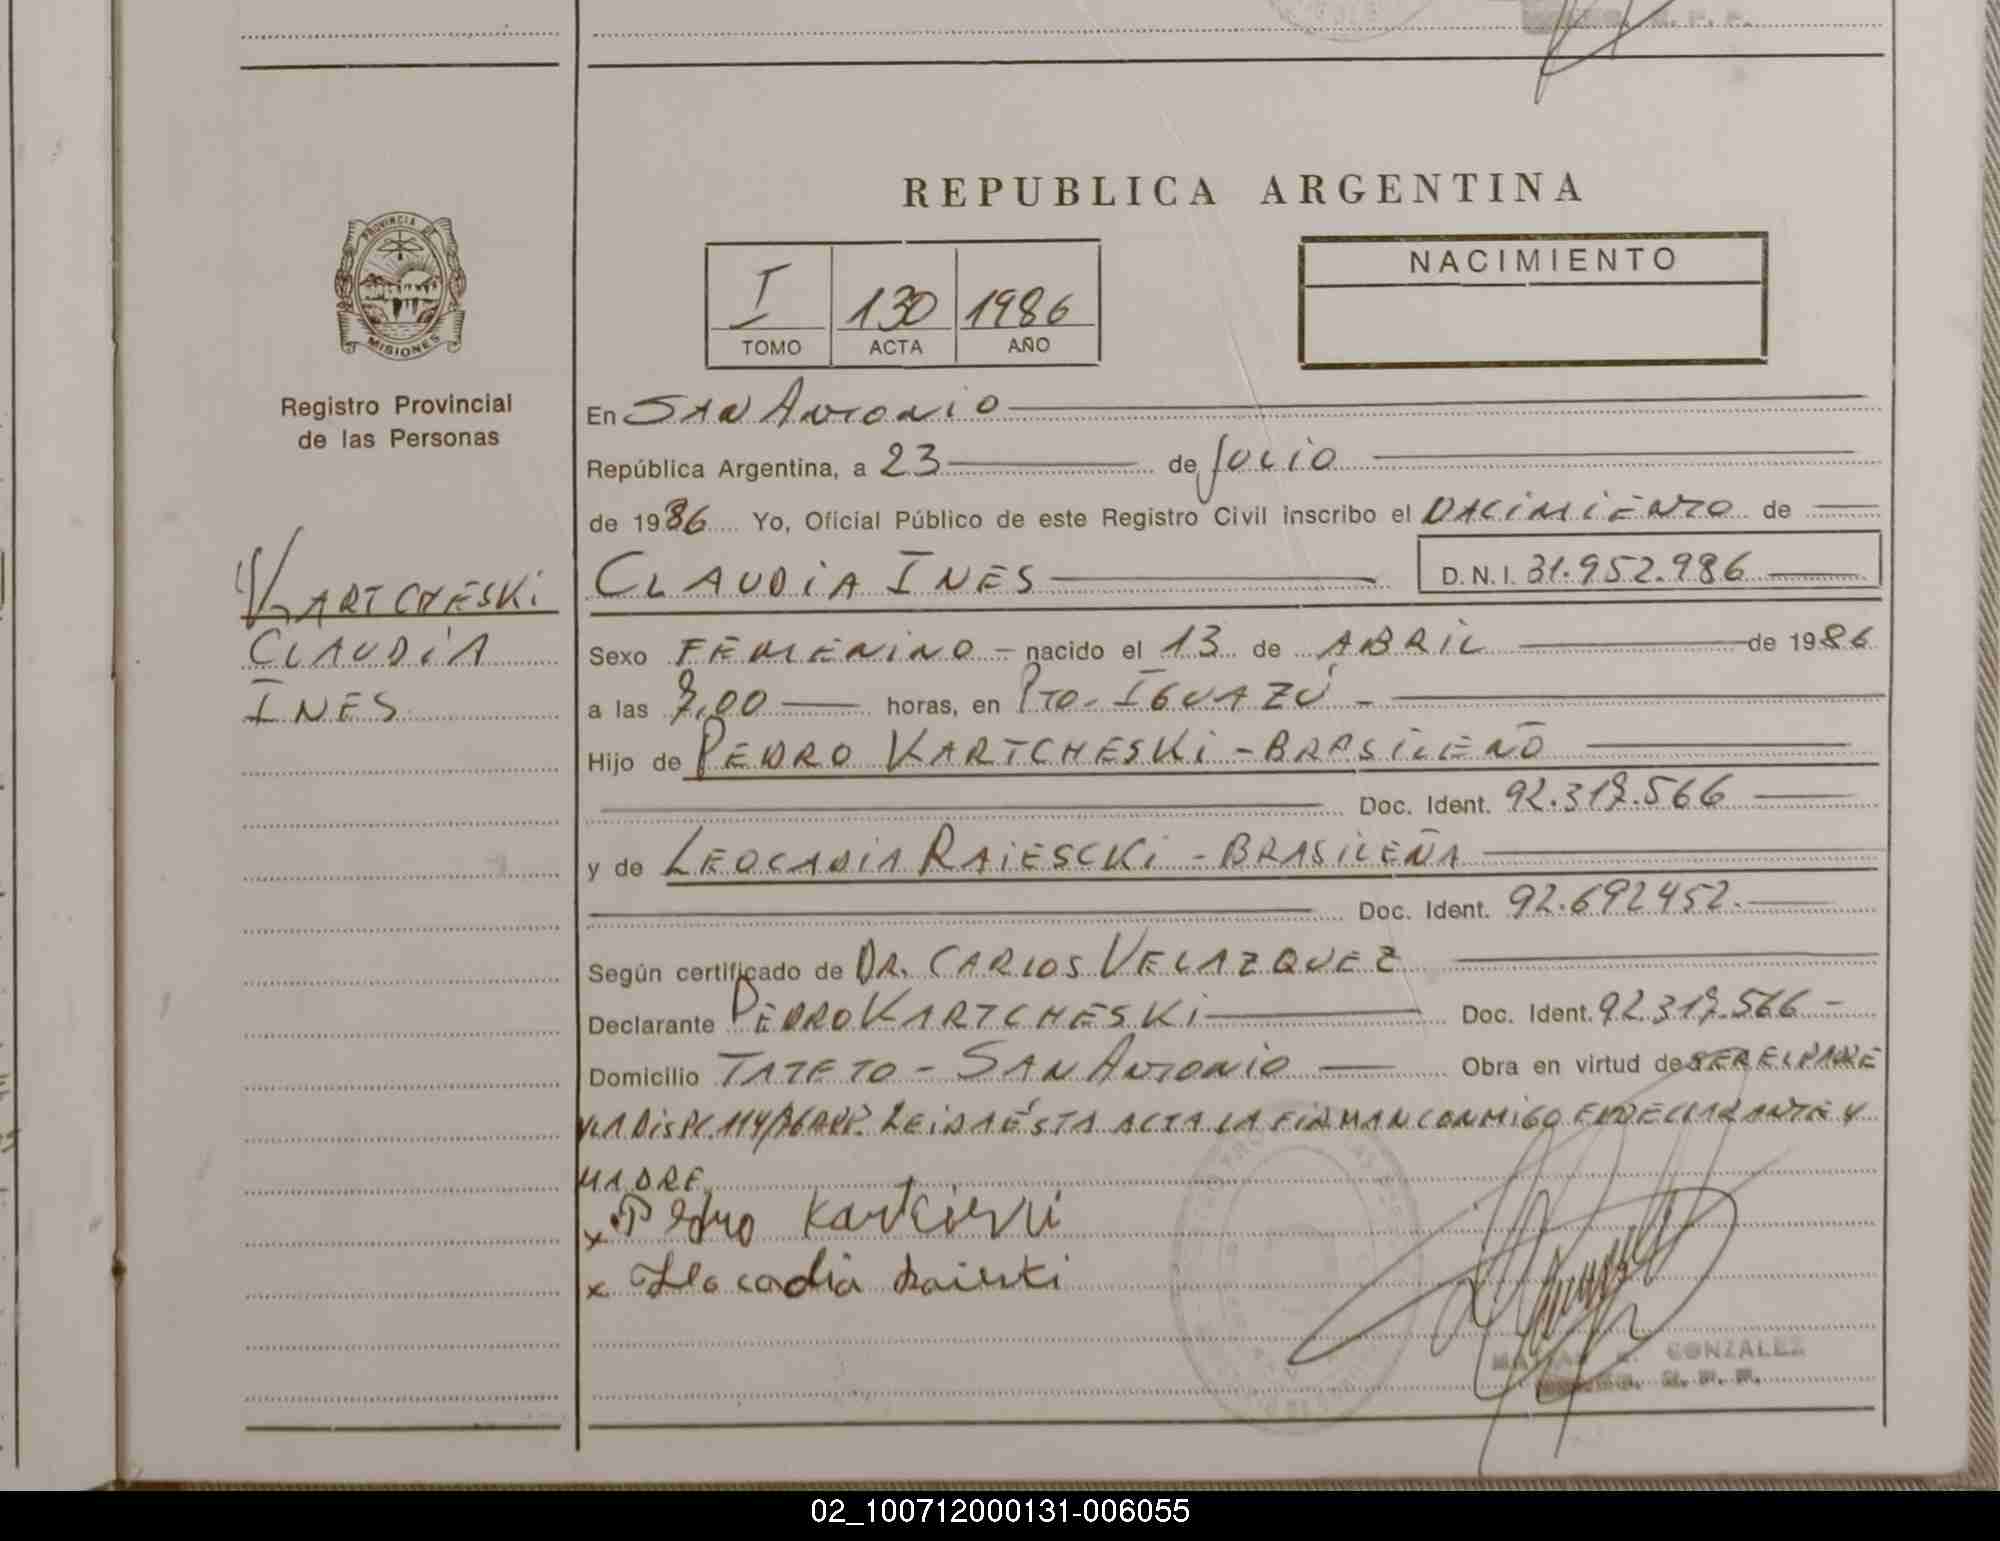 REPUBLICA ARGENTINA
PROVINCIA DE
MISIONES
Registro Provincial
de las Personas
I 130 1986
TOMO ACTA AÑO
NACIMIENTO
KARTCHESKI
CLAUDIA
INES
En SAN ANTONIO
República Argentina, a 23 de JULIO
de 1986 Yo, Oficial Público de este Registro Civil inscribo el NACIMIENTO de
CLAUDIA INES D.N.I. 31.952.986
Sexo FEMENINO - nacido el 13 de ABRIL de 1986
a las 7,00 horas, en PTO. IGUAZÚ -
Hijo de PEDRO KARTCHESKI - BRASILEÑO
Doc. Ident. 92.317.566
y de LEOCADIA RAIESCKI - BRASILEÑA
Doc. Ident. 92.692452.
Según certificado de DR. CARLOS VELAZQUEZ
Declarante PEDRO KARTCHESKI Doc. Ident. 92.317.566 -
Domicilio TATETO - SAN ANTONIO Obra en virtud de SER EL PADRE
Y LA DISPC. 114/86 RPP. LEIDA ÉSTA ACTA LA FIRMAN CONMIGO EL DECLARANTE Y
MADRE.
x Pedro
x Leocadia
GONZALEZ
02_100712000131-006055